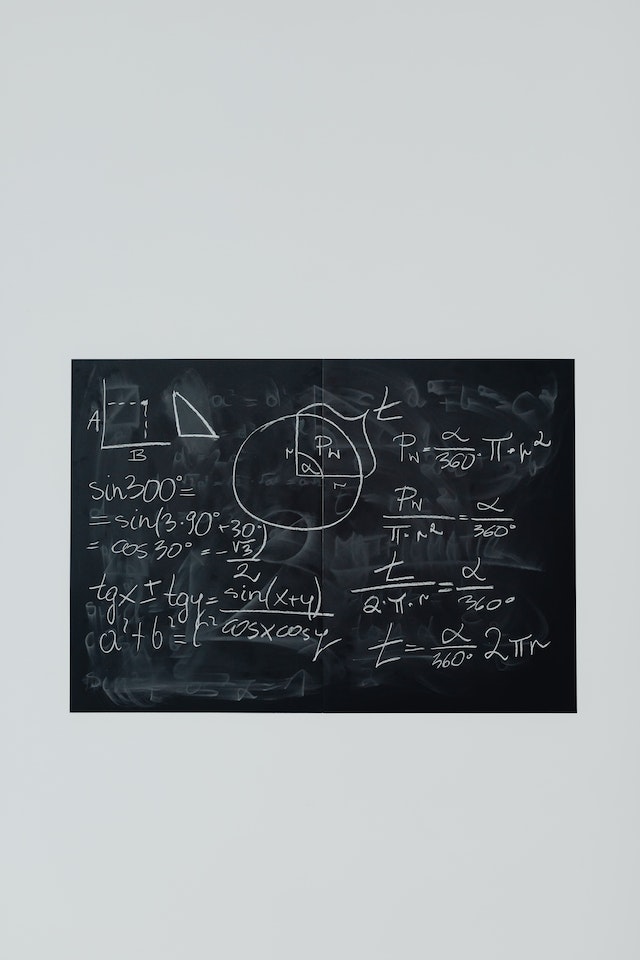 A
B
sin300°=
=sin(3·90°+30°)
= cos30° = -√3/2
tgx ± tgy = sin(x+y)/cosxcosy
a²+b²=c²
t
r
α
P_w
r
P_w = α/360° · π · r²
P_w/π·r² = α/360°
t/2·π·r = α/360°
t = α/360° 2πr